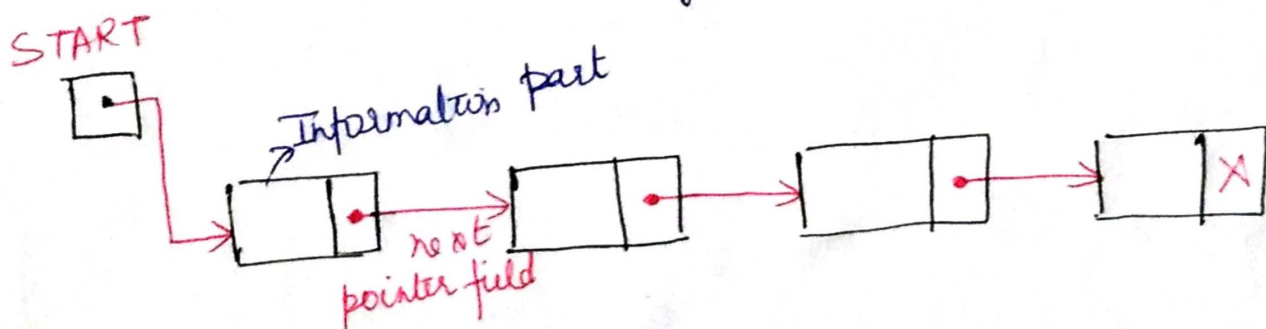 START
Information part
next
pointer field
X